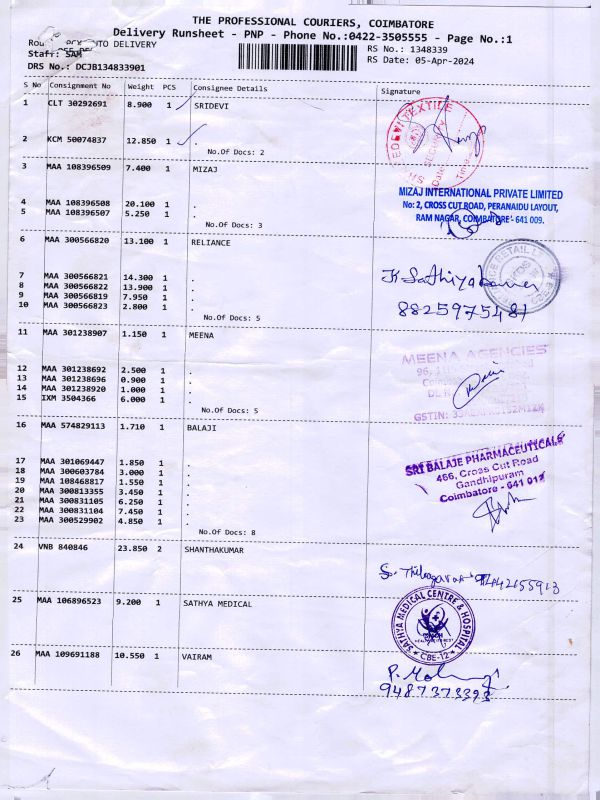 THE PROFESSIONAL COURIERS, COIMBATORE
Delivery Runsheet - PNP - Phone No.:0422-3505555 - Page No.:1
AUTO DELIVERY
RS No.: 1348339
Staff: SAM
RS Date: 05-Apr-2024
DRS No.: DCJB134833901
S No Consignment No Weight PCS Consignee Details Signature
1 CLT 30292691 8.900 1 SRIDEVI
TEXTILE
2 KCM 50074837 12.850 1 .
No.Of Docs: 2
3 MAA 108396509 7.400 1 MIZAJ
MIZAJ INTERNATIONAL PRIVATE LIMITED
No: 2, CROSS CUT ROAD, PERANAIDU LAYOUT,
RAM NAGAR, COIMBATORE - 641 009.
4 MAA 108396508 20.100 1 .
5 MAA 108396507 5.250 1 .
No.Of Docs: 3
6 MAA 300566820 13.100 1 RELIANCE
7 MAA 300566821 14.300 1 .
8 MAA 300566822 13.900 1 .
9 MAA 300566819 7.950 1 .
10 MAA 300566823 2.800 1 .
No.Of Docs: 5
K Sathiyakumar
8825975481
11 MAA 301238907 1.150 1 MEENA
MEENA AGENCIES
12 MAA 301238692 2.500 1 .
13 MAA 301238696 0.900 1 .
14 MAA 301238920 1.000 1 .
15 IXM 3504366 6.000 1 .
No.Of Docs: 5
GSTIN:
16 MAA 574829113 1.710 1 BALAJI
SRI BALAJE PHARMACEUTICALS
466, Cross Cut Road
Gandhipuram
Coimbatore - 641 012
17 MAA 301069447 1.850 1 .
18 MAA 300603784 3.000 1 .
19 MAA 108468817 1.550 1 .
20 MAA 300813355 3.450 1 .
21 MAA 300831105 6.250 1 .
22 MAA 300831104 7.450 1 .
23 MAA 300529902 4.850 1 .
No.Of Docs: 8
24 VNB 840846 23.850 2 SHANTHAKUMAR
25 MAA 106896523 9.200 1 SATHYA MEDICAL
SATHYA MEDICAL CENTRE & HOSPITAL
CBE-12
26 MAA 109691188 10.550 1 VAIRAM
9487373393